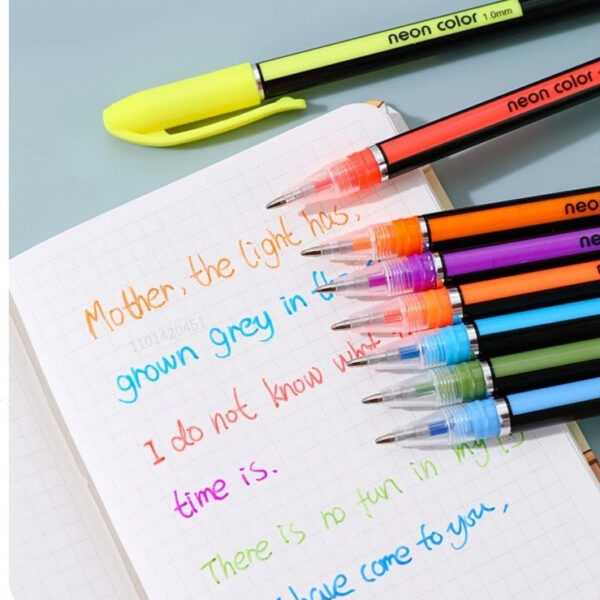 neon color 1.0mm
neon color
neo
ne
Mother, the light has,
1101420451
grown grey in the
I do not know what
time is.
There is no fun in my
have come to you,